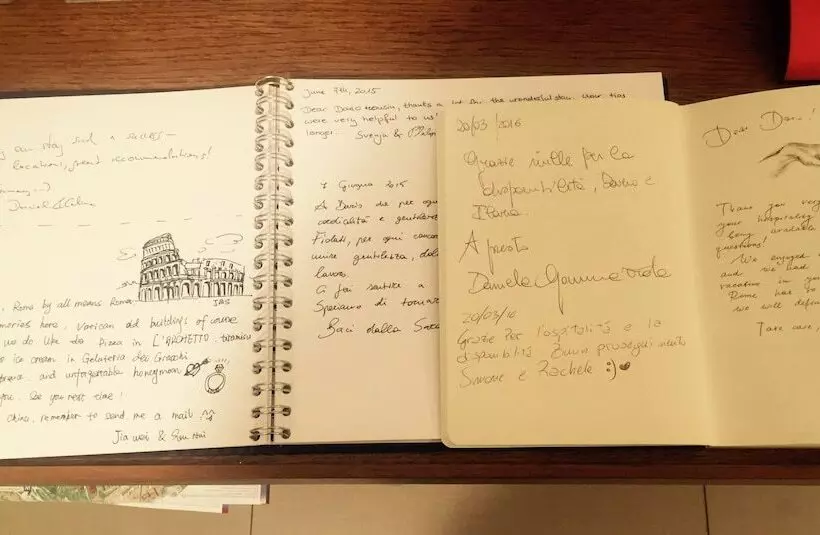 can stay such a success
location, great recommendations!
Daniel &
JBS
Roma by all means Roma
memories here, Vatican old buildings of course
we do like do Pizza in L'ARCHETTO tiramisu
ice cream in Gelateria dei Gracchi
and unforgettable honeymoon
you. See you next time!
China, remember to send me a mail
Jia wei &
June 7th, 2015
Dear Dario, thanks a lot for the wonderful stay. Your tips
were very helpful to us!
longer. Svenja &
7 Giugno 2015
A Dario che per ogni
cordialità e gentilezza
per ogni
unire gentilezza,
lavoro.
Ci fai sentire a
Speriamo di tornar
Baci dalla
20/03/2016
Grazie mille per la
disponibilità, Dario e
Ilaria.
A presto
Daniela
20/03/16
Grazie per l'ospitalità e la
disponibilità Buon proseguimento
Simone e Rachele :) ♥
Dear Dario!
Thank you very
your hospitality
being available
questions!
We enjoyed
and we had
vacation in you
Rome has so
we will defin
Take care,